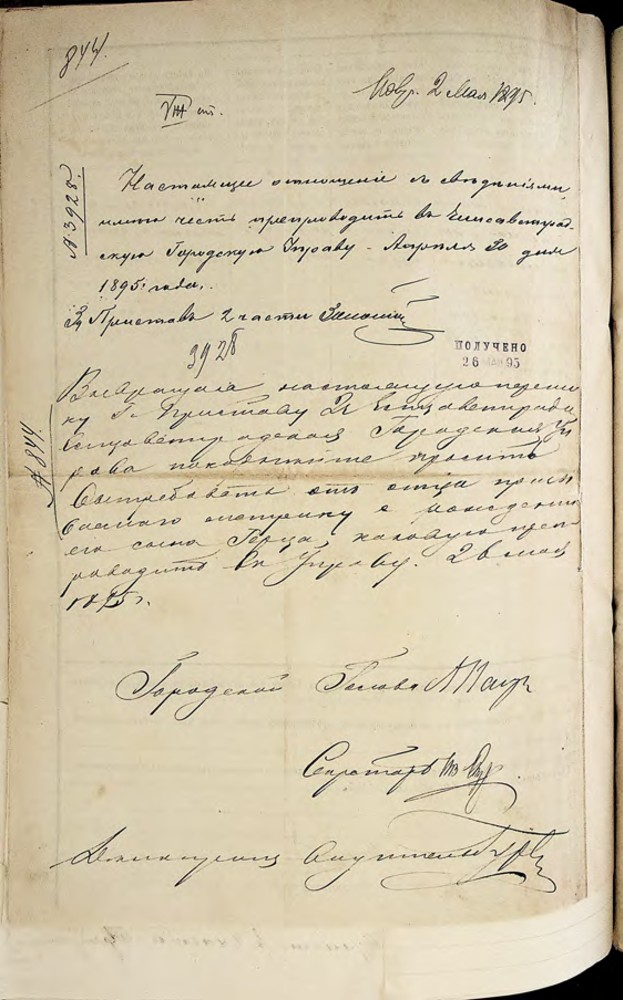 844.
2 Мая 1895.
VIII ст.
№ 3928.
Настоящее отношеніе съ свѣдѣніями
имѣю честь препроводить въ Елисаветград-
скую Городскую Управу - Апрѣля 30 дня
1895 года.
Приставъ 2 части
3928
ПОЛУЧЕНО
26 МАЯ 95
№ 844
Возвращая настоящую перепис
ку Г. Приставу 2 ч. Елисаветграда
Елисаветградская Городская Уп
рава покорнѣйше проситъ
истребовать отъ отца
метрику о рожденіи
его сына Герца, каковую преп
роводить въ Управу. 26 мая
1895 г.
Городской Голова
Секретарь